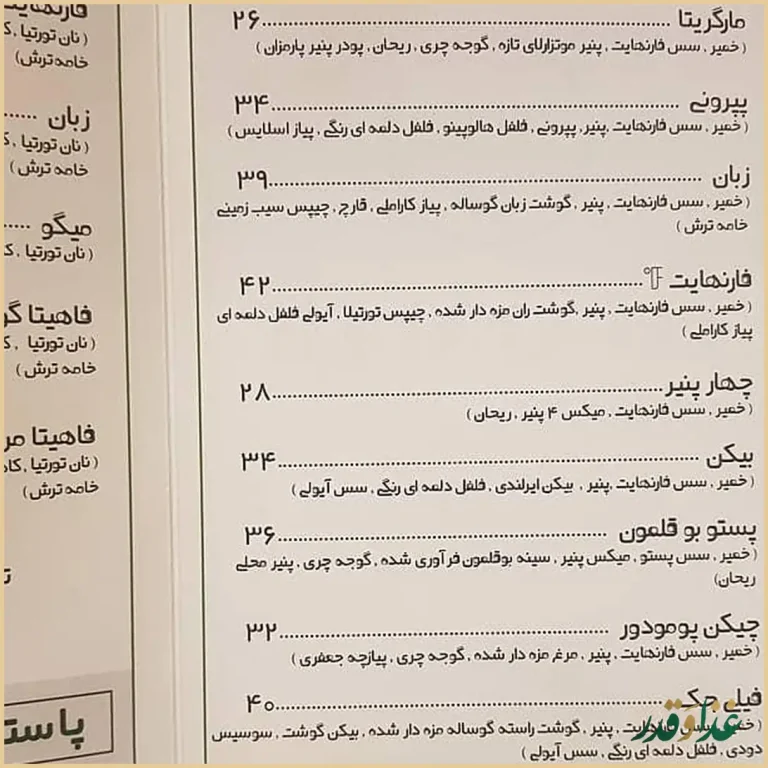 مارگریتا ........ ۲۶
( خمیر , سس فارنهایت , پنیر موتزارلای تازه , گوجه چری , ریحان , پودر پنیر پارمزان )
پپرونی ........ ۳۴
( خمیر , سس فارنهایت ,پنیر, پپرونی , فلفل هالوپینو , فلفل دلمه ای رنگی , پیاز اسلایس )
زبان ........ ۳۹
( خمیر , سس فارنهایت , پنیر , گوشت زبان گوساله , پیاز کاراملی , قارچ , چیپس سیب زمینی
خامه ترش )
فارنهایت °F ........ ۴۲
( خمیر , سس فارنهایت , پنیر ,گوشت ران مزه دار شده , چیپس تورتیلا , آیولی فلفل دلمه ای
پیاز کاراملی )
چهار پنیر ........ ۲۸
( خمیر , سس فارنهایت , میکس ۴ پنیر , ریحان )
بیکن ........ ۳۴
( خمیر , سس فارنهایت ,پنیر , بیکن ایرلندی , فلفل دلمه ای رنگی , سس آیولی )
پستو بو قلمون ........ ۳۶
(خمیر , سس پستو , میکس پنیر , سینه بوقلمون فر آوری شده , گوجه چری , پنیر محلی
ریحان)
چیکن پومودور ........ ۳۲
( خمیر , سس فارنهایت , پنیر , مرغ مزه دار شده , گوجه چری , پیازچه جعفری )
فیلی چک ........ ۴۰
( خمیر , سس فارنهایت , پنیر , گوشت راسته گوساله مزه دار شده , بیکن گوشت , سوسیس
دودی , فلفل دلمه ای رنگی , سس آیولی )
( نان تورتیا ,
خامه ترش)
زبان ........
( نان تورتیا ,
خامه ترش )
میگو ........
( نان تورتیا ,
فاهیتا
( نان تورتیا ,
خامه ترش )
فاهیتا
( نان تورتیا ,
خامه ترش)
غذا و قدر